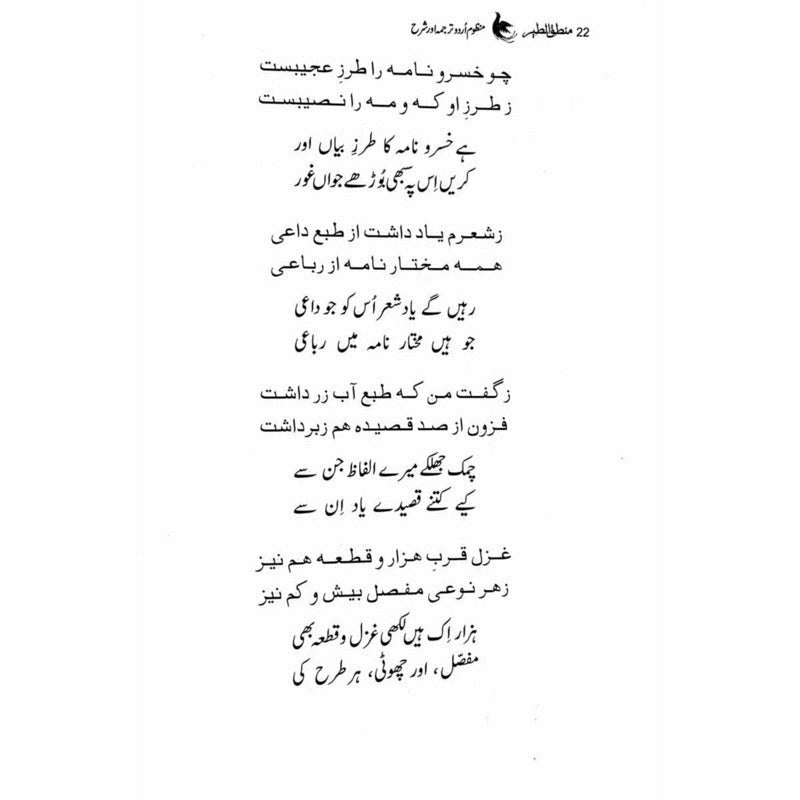 22 منطق الطیر منظوم اُردو ترجمہ اور شرح
چو خسرو نامه را طرزِ عجیبست
ز طرزِ او که و مه را نصیبست
ہے خسرو نامہ کا طرزِ بیاں اور
کریں اِس پہ سبھی بُوڑھے جواں غور
زشعرم یاد داشت از طبع داعی
همه مختار نامه از رباعی
رہیں گے یاد شعر اُس کو جو داعی
جو ہیں مختار نامہ میں رباعی
زگفت من که طبع آب زر داشت
فزون از صد قصیده هم زبرداشت
چمک جھلکے میرے الفاظ جن سے
کیے کتنے قصیدے یاد اِن سے
غزل قربِ هزار و قطعه هم نیز
زهر نوعی مفصل بیش و کم نیز
ہزار اِک ہیں لکھی غزل و قطعہ بھی
مفصّل، اور چھوٹی، ہر طرح کی